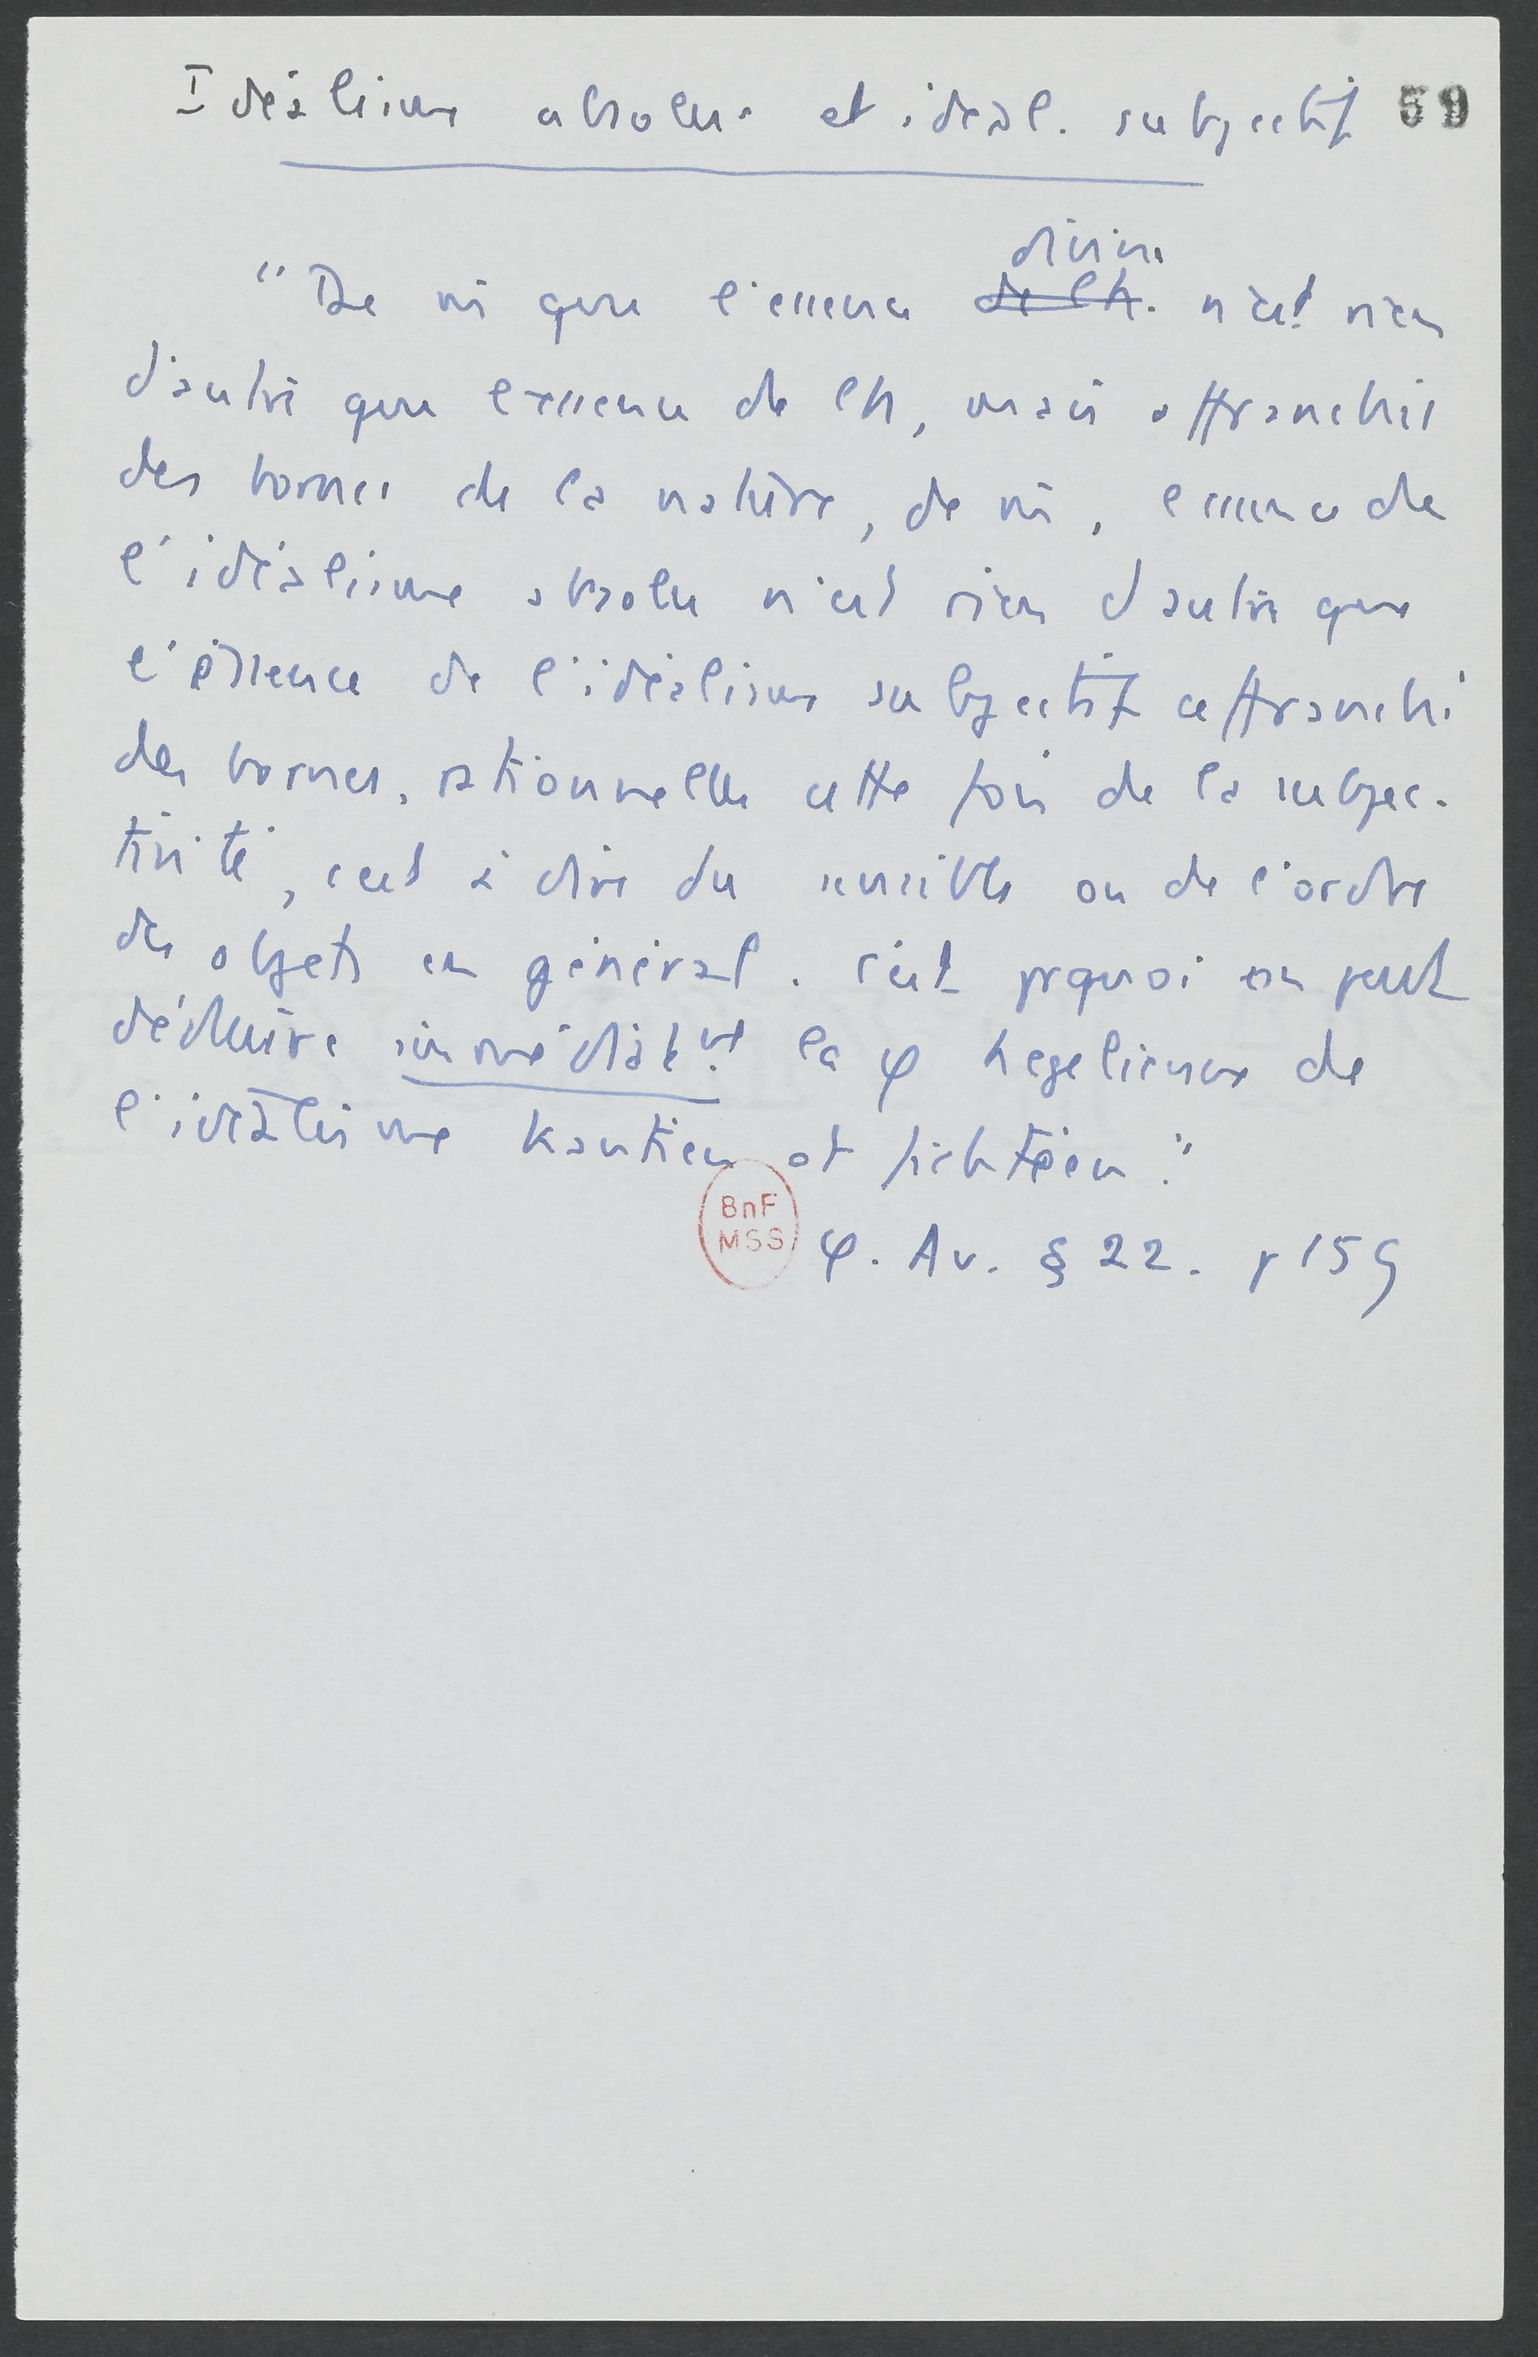 Idéalisme absolu et idéal. subjectif 59
divine
"De m que l'essence de l'h. n'est rien
d'autre que l'essence de l'h, mais affranchie
des bornes de la nature, de m, l'essence de
l'idéalisme absolu n'est rien d'autre que
l'essence de l'idéalisme subjectif affranchi
des bornes, rationnelles cette fois de la subjec-
tivité, c'est à dire du sensible ou de l'ordre
des objets en général. C'est prquoi on peut
déduire immédiatt la φ hegelienne de
l'idéalisme kantien et fichtéen."
BnF
MSS
φ. Av. § 22. p 159